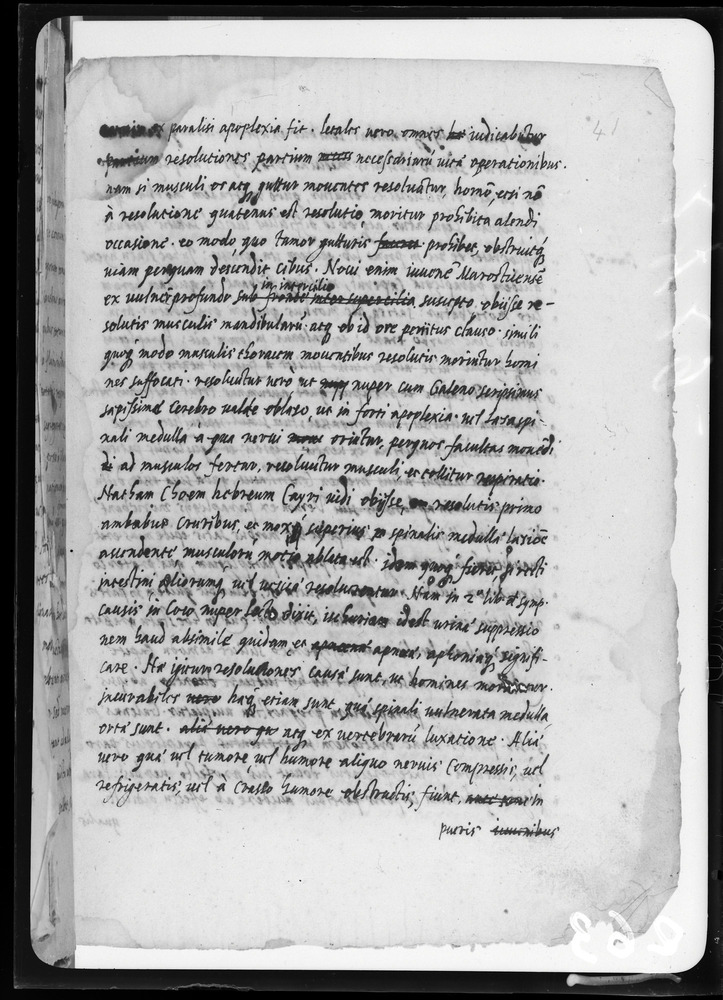 41
ex paralisi apoplexia fit. letales vero omnes iudicabuntur
resolutiones partium necessariarũ vitæ operationibus.
nam si musculi os atq guttur moventes resolvãtur, homo, etsi nõ
à resolutione quatenus est resolutio moritur prohibita alendi
occasione. eo modo, quo tumor gutturis prohibet, obstruitq
viam per quam descendit cibus. Novi enim iuvenẽ Marosticensẽ
in intercilio
ex vulnere profundo sub fronte inter supercilia suscepto obijsse re-
solutis musculis mandibularũ. atq ob id ore penitus clauso. simili
quoq modo musculis thoracem moventibus resolutis moriuntur homi
nes suffocati. resolvuntur vero ut nuper cum Galeno scripsimus
sæpissime Cerebro valde oblæso, ut in forti apoplexia. vel læsa spi-
nali medulla à qua nervi oriũtur, per quos facultas movẽdi
ad musculos fertur, resolvuntur musculi, et tollitur respiratio.
Natham Choem hebreum Cayri vidi obijsse, resolutis primo
ambabus cruribus, et mox superius spinalis medullæ læsiõe
ascendente musculorũ motio ablata est. idem quoq fieret si recti
intestini aliorumq vel vesicæ resolverentur. Nam in 2º lib. d symp.
causis in loco nuper lecto dixit, ischuriam idest urinæ suppressio
nem haud absimile quidam et apnœa, aphoniaq signifi-
care. Hæ igitur resolutiones causæ sunt, ut homines moriantur.
incurabiles hæq etiam sunt quæ spinali vulnerata medulla
ortæ sunt. alie vero qu atq ex vertebrarũ luxatione. Aliæ
vero quæ vel tumore, vel humore aliquo nervis compressis, vel
refrigeratis, vel à crasso humore obstructis, fiunt, in
pueris iuvenibus
263